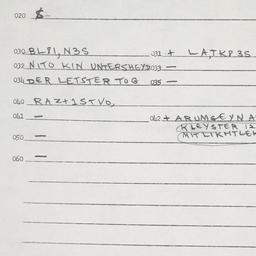 020 $ —
030 BLPI, N3S 031 + LA, TKP 3S
032 NITO KIN UNTERSHEYD 033 —
034 DER LETSTER TOG 035 —
040 RAZ+1STVO,
041 — 042 + ARUMGEYNA
KLEYSTER IZ
MIT LIKHTLEK
050 —
060 —